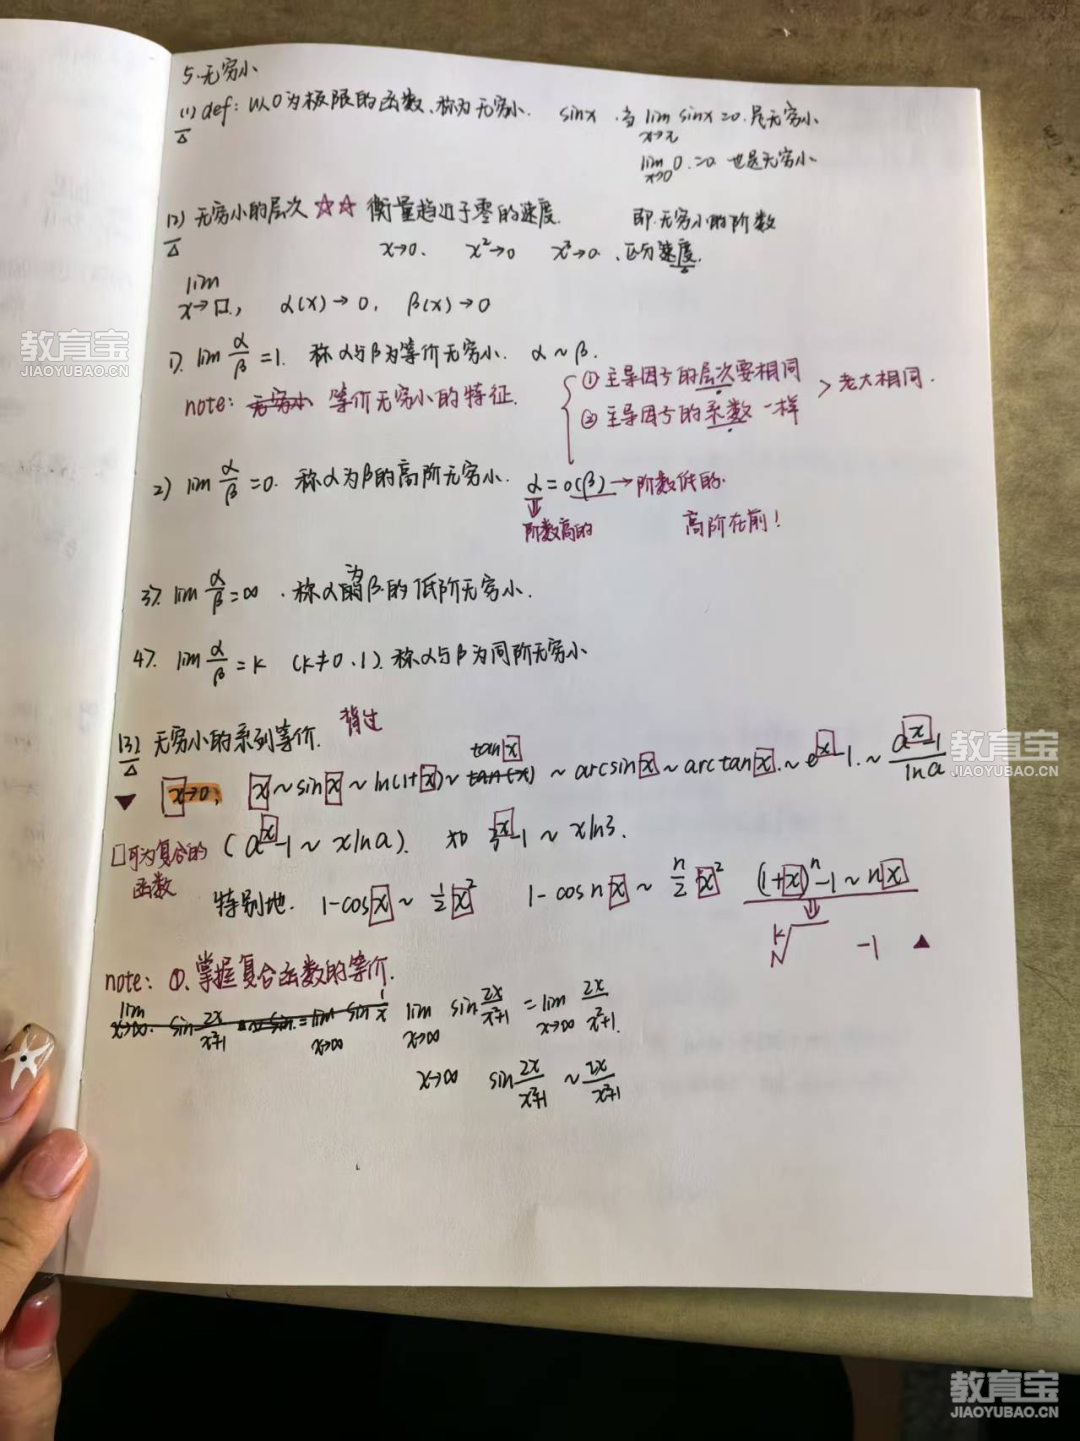 5.无穷小
(1) def: 以0为极限的函数、称为无穷小. sinx.当 lim x→π sinx=0.是无穷小
lim x→0 0.=0 也是无穷小
(2) 无穷小的层次 ☆☆ 衡量趋近于零的速度. 即.无穷小的阶数
x→0. x²→0 x³→0 、区分速度.
lim x→□., α(x)→0, β(x)→0
1). lim α/β =1. 称α与β为等价无穷小. α~β.
① 主导因子的层次要相同
note: 无穷小 等价无穷小的特征. > 老大相同.
② 主导因子的系数一样
2) lim α/β =0. 称α为β的高阶无穷小. α=o(β)→阶数低的.
阶数高的 高阶在前!
3). lim α/β =∞ .称α为β的低阶无穷小.
4). lim α/β =k (k≠0、1).称α与β为同阶无穷小
(3) 无穷小的系列等价. 背过
x→0, x~sinx~ln(1+x)~tanx ~arcsinx~arctanx.~e^x-1.~(a^x-1)/lna
□可为复合的函数 (a^x-1~xlna). 如 3^x-1~xln3.
特别地. 1-cosx~1/2 x² 1-cosnx~n/2 x² (1+x)^n-1~nx
k√ -1
note: ①.掌握复合函数的等价.
lim x→∞. sin 2x/x²+1 lim x→∞ sin 1/x lim x→∞ sin 2x/x²+1 = lim x→∞ 2x/x²+1.
x→∞ sin 2x/x²+1 ~ 2x/x²+1
教育宝
JIAOYUBAO.CN
教育宝
JIAOYUBAO.CN
教育宝
JIAOYUBAO.CN